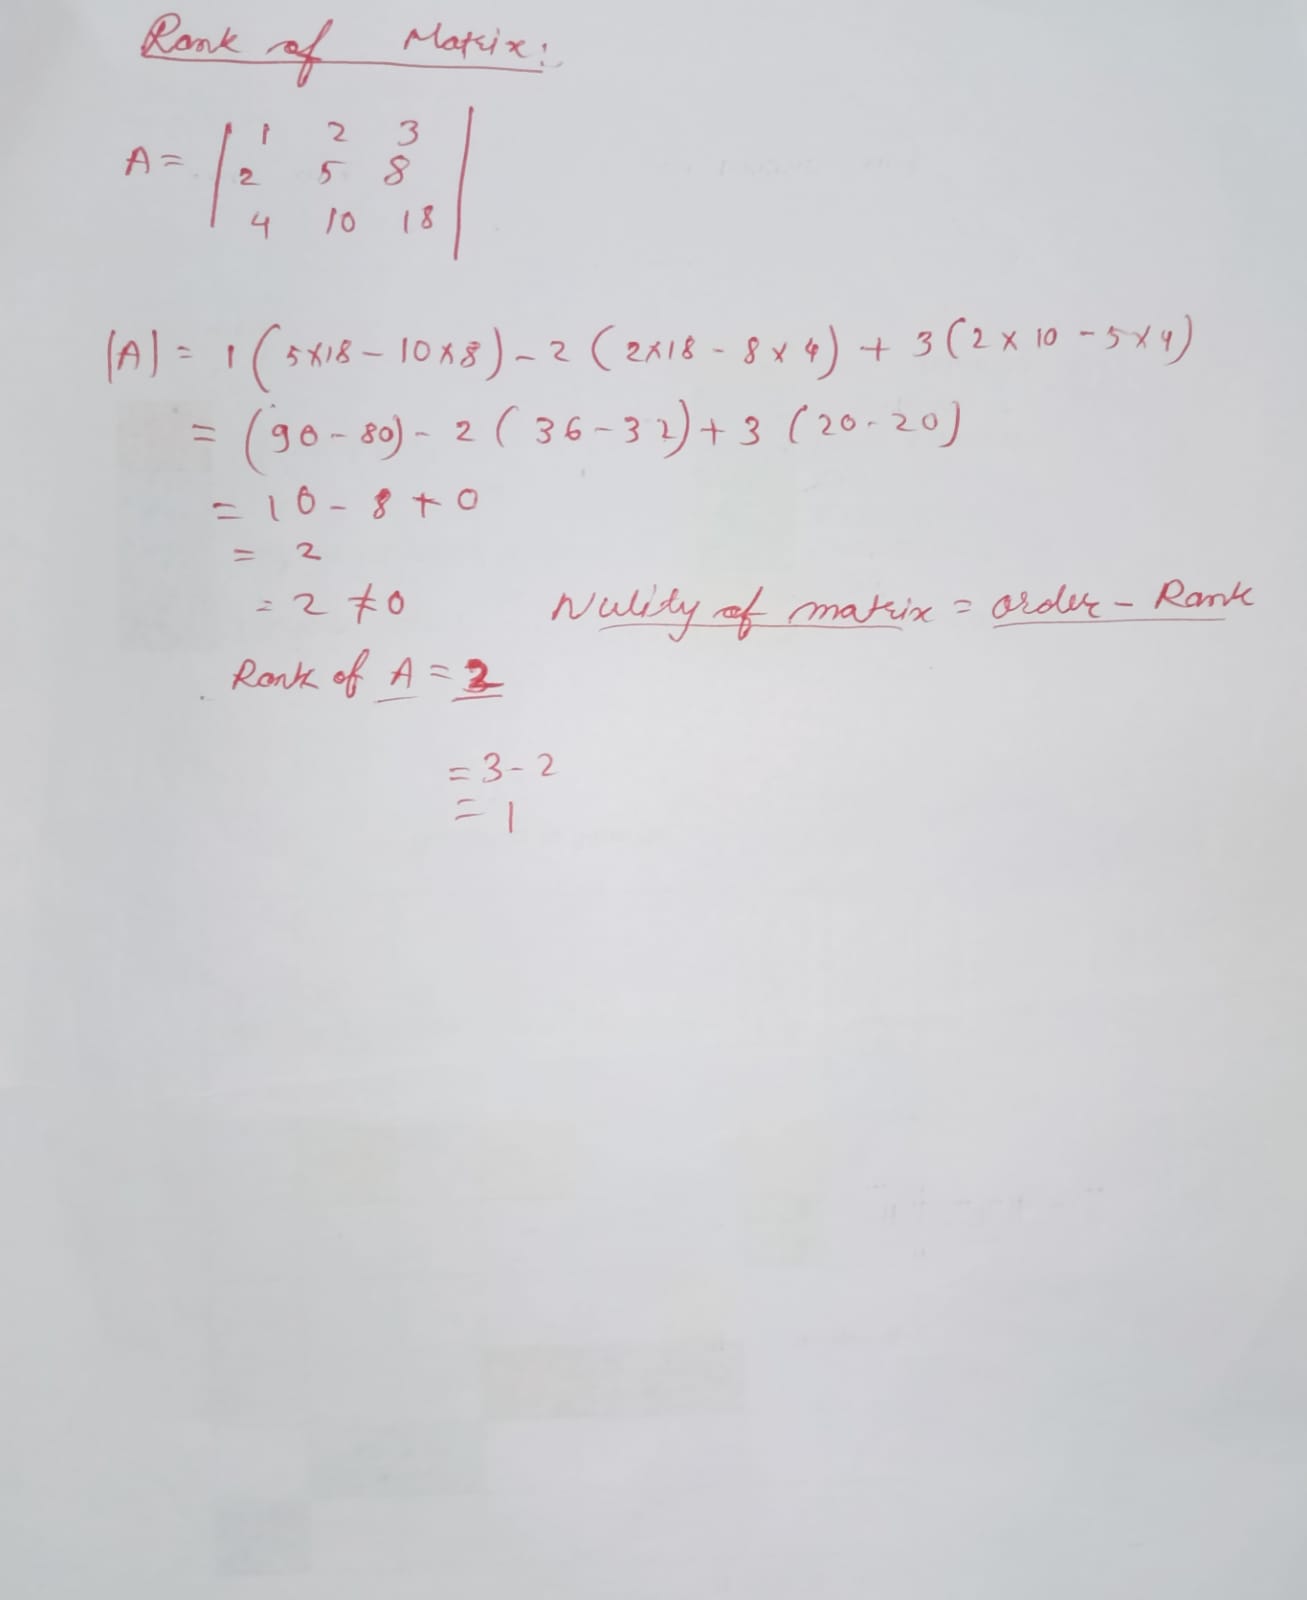 Rank of Matrix:
A = | 1 2 3 |
2 5 8
4 10 18
|A| = 1 (5×18 - 10×8) - 2 (2×18 - 8×4) + 3 (2×10 - 5×4)
= (90 - 80) - 2 (36 - 32) + 3 (20 - 20)
= 10 - 8 + 0
= 2
= 2 ≠ 0
Nulity of matrix = order - Rank
Rank of A = 2
= 3 - 2
= 1